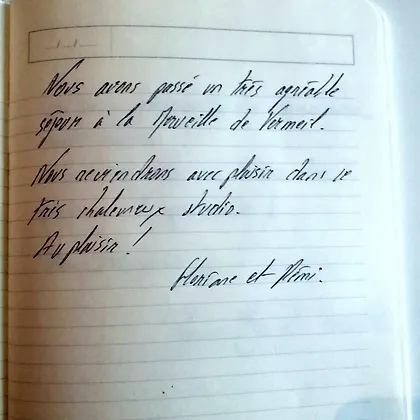 Nous avons passé un très agréable
séjour à la Merveille de Vermeil.
Nous reviendrons avec plaisir dans ce
très chaleureux studio.
Au plaisir !
Floriane et Rémi.